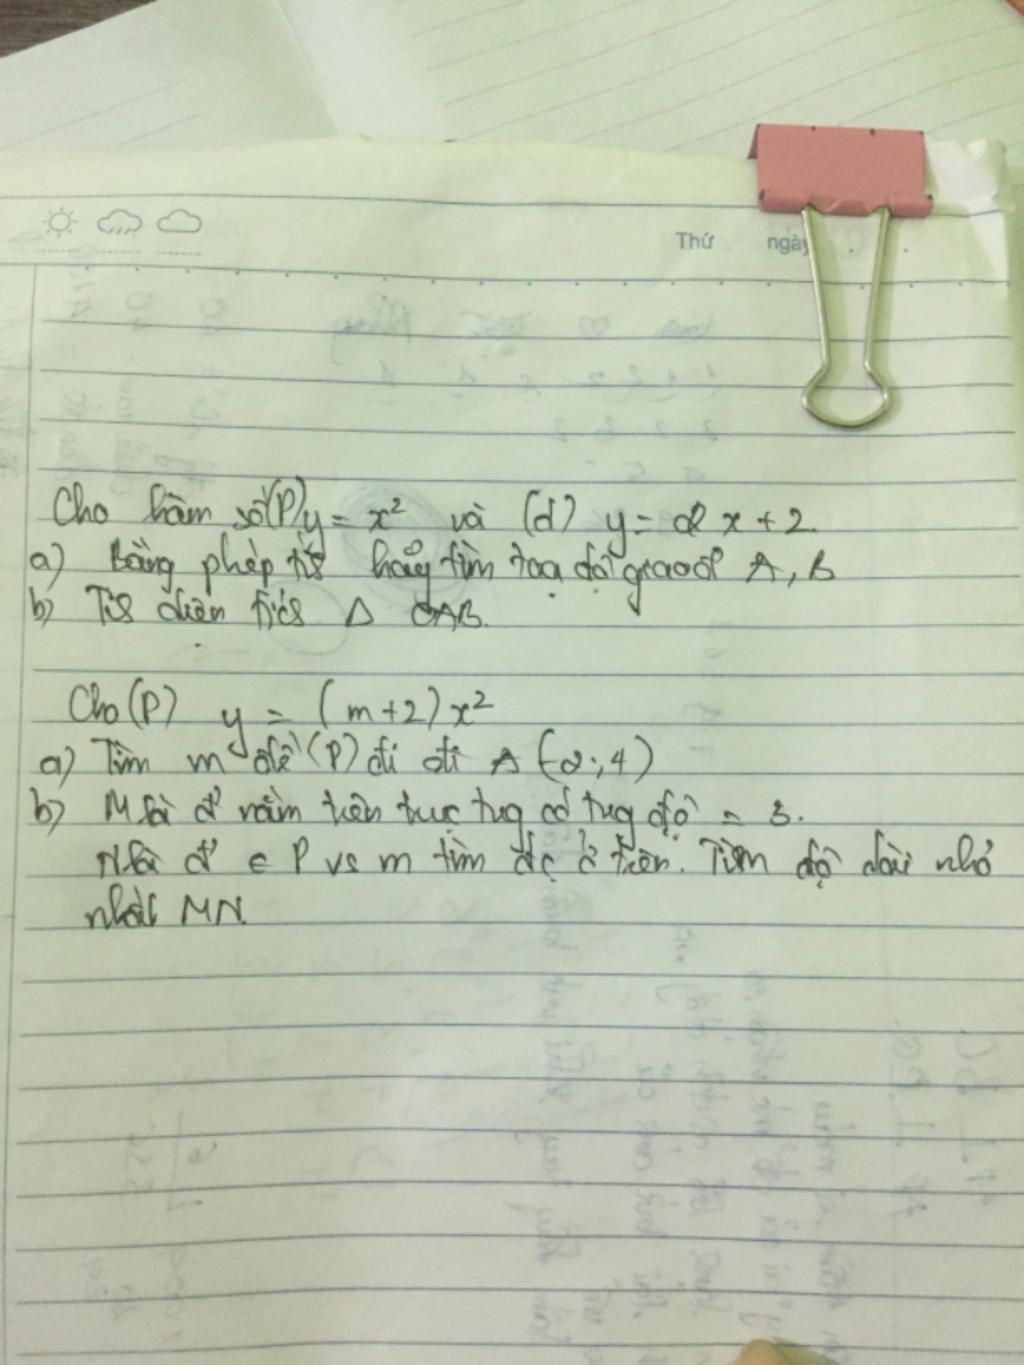 Thứ ngày
Cho hàm số (P) y = x² và (d) y = 2x + 2
a) Bằng phép tính hãy tìm toạ độ giao đ' A, B
b) Tính diện tích Δ OAB.
Cho (P) y = (m+2)x²
a) Tìm m để (P) đi đi A (-2; 4)
b) M là đ' nằm trên trục tung có tung độ = 3.
N là đ' ∈ P vs m tìm đc ở trên. Tìm độ dài nhỏ
nhất MN.